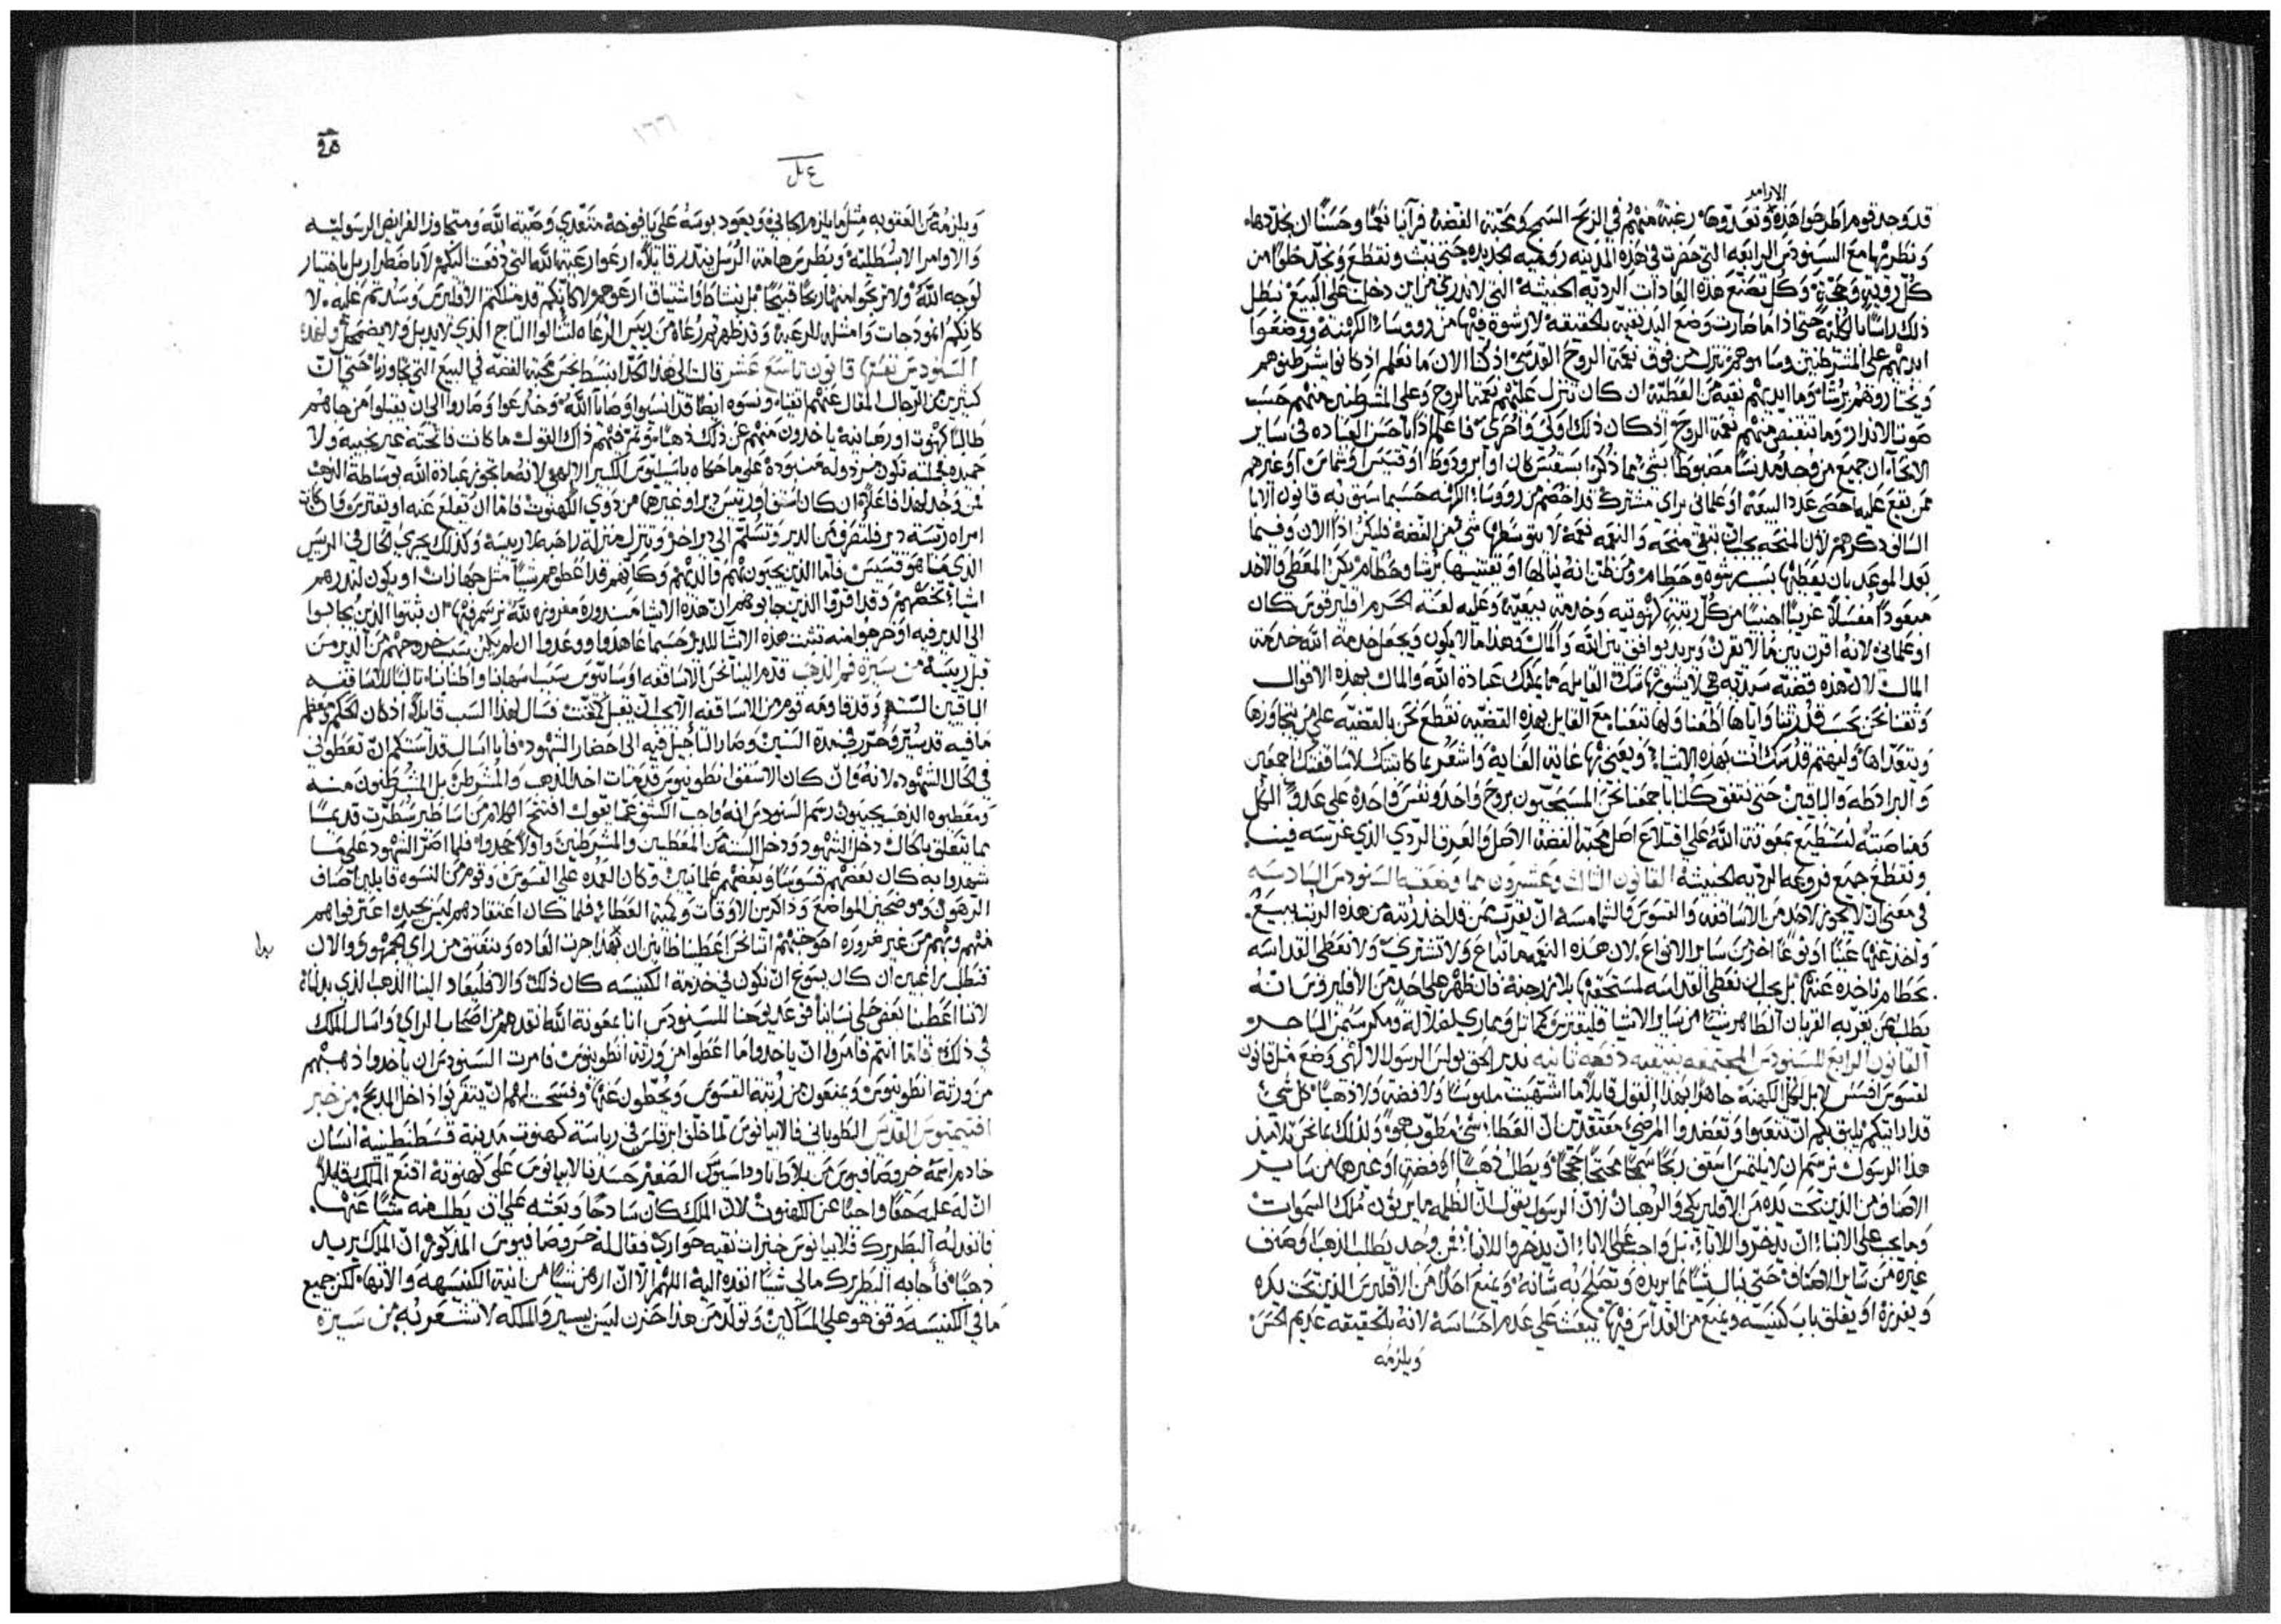 الاوامر
قد وجد قوم اطرحوا هذه وتعدوها رغبة منهم في الربح السمج ومحبة الفضة فرآينا نعما وحسنا ان نجددها
ونطربها مع السينودس الرابعه التي حضرت في هذه المدينه روميه الجديده حتى نبث ونقطع ونجد خلوا من
كل روية وحجة وكل تصنع هذه العادات الرديه الخبيثه التي لا ندري من اين دخلت على البيع نبطل
ذلك راسا بالكلية حتى اذا ما صارت وضع اليد نقيه بالحقيقه لا رشوة فيها من رووساء الكهنة ووضعوا
ايديهم على المشرطنين وساموهم تنزل من فوق نعمة الروح القدس اذ كنا الان ما نعلم اذ كانوا شرطنوهم
ويختاروهم برشاء وما ايديهم نقية من العطية ان كان تنزل عليهم نعمة الروح وعلى المشرطنين منهم حسب
صوت الانذار وما تنقبض منهم نعمة الروح اذ كان ذلك اولى واحرى فاعلم اذا يا حسن العباده في ساير
الانحاء ان جميع من وجد مدنسا مضبوطا بشي مما ذكر اسقفس كان او ابرودوط او قسيس او شماس او غيرهم
ممن يقع عليه احصى عدد البيعه او علماني براي مشترك قد احضهم من رووساء الكهنه حسبما سبق به قانون الابا
السابق ذكرهم لان المنحه يجب ان تبقى منحه والنعمه نعمة لا يتوسطها شي من الفضة فليكن اذا الان وفيما
بعد الموعد بان يعطيها بسبب رشوه وحطام ومن ظن انه ينالها او يقتنيها برشا وحطام يكن المعطي والاخد
مبعودا مفسلا غريبا اجنبيا من كل رتبة كهنوتيه وخدمة بيعية وعليه لعنة الحرم اقليرقوس كان
او علماني لانه اقرن بين ما لا يقرن ويريد يوافق بين الله والمال وهذا ما لا يكون ويجعل خدمة الله خدمة
المال لان هذه قضية سيديه هي لا يشوبها شك القايله ما يمكنك عبادة الله والمال بهذه الاقوال
وثقنا نحن بحسب قدرتنا واياها اطعنا ولها تبعنا مع القايل بهذه القضيه نقطع نحن بالقضية على من يتجاوزها
ويتعداها وليهتم قدسك انت بهذه الاشياء ويعنى بها غاية العناية واشعر بمكاتبتك لاساقفتك اجمعين
والبرادطه والباقين حتى نتفق كلنا باجمعنا نحن المسيحيون بروح واحد ونفس واحدة على عدو الكل
ومناصبه لنستطيع بمعونة الله على اقتلاع اصل محبة الفضة الاصل والعرق الردي الذي غرسه فينا
ونقطع جميع فروعه الرديه الخبيثه القانون الثالث وعشرون مما وضعته السينودس السادسه
في معنى ان لا يجوز لاحد من الاساقفه والقسوس والشمامسه ان يقرب ممن قد اخذ رتبه من هذه الرتب ببيع
واخذ عنها عينا او نوعا اخر من ساير الانواع لان هذه النعمه ما تباع ولا تشترى ولا نعطي القداسه
بحطام ناخذه عنها بل يجب ان نعطي القداسه لمستحقها بلا بزدجنة فان ظهر على احد من الاقليروس انه
يطلب ممن يقربه القربان الطاهر شيا من ساير الاشيا فليفترز كماثل ومماري لضلالة ومكر سيمن الساحر
القانون الرابع للسينودس المجتمعه بنيقيه دفعة ثانيه نذير الحق بولس الرسول الالهي وضع مثل قانون
لقسوس افسس لا بل لكل الكهنة جاهرا بهذا القول قايلا ما اشتهيت ملبوسا ولا فضة ولا ذهبا كل شي
قد اريتكم يليق بكم ان تتعبوا وتعضدوا المرضى معتقدين ان العطاء شي مطوب هو ولذلك يا نحن تلاميذ
هذا الرسول نرسم ان لا يلتمس اسقف ربحا سمجا محتجا حججا ويطلب ذهبا او فضة او غيرها من ساير
الاصناف من الذين تحت يده من الاقليريكي والرهبان لان الرسول يقول ان الظلمه ما يرثون ملك السموات
وما يجب على الابناء ان يدخروا للاباء بل واجب على الاباء ان يدخروا للابناء فمن وجد يطلب ذهبا وصنف
غيره من ساير الاصناف حتى ينال شيا مما يريده وتصلح به شانه ويمنع احدا من الاقليرس الذين تحت يده
ويفرزه او يغلق باب كنيسته ويمنع من القداس فيها يبعث على عدم احساسه لانه بالحقيقه عديم الحس
ويلزمه
ع بل
ويلزمه من العقوبه مثل ما يلزم الجاني ويعود بوسه على يافوخه متعدي وصية الله ومتجاوز الفرايض الرسوليه
والاوامر الابسطليه وبطرس هامة الرسل ينذر قايلا ارعوا رعية الله التي دفعت اليكم لا باضطرار بل باختيار
لوجه الله ولا تربحوا منها ربحا قبيحا بل بنشاط واشتياق ارعوهم ولا كانكم قد ملكتم الاقليرس وسدتم عليه لا
كانكم انموذجات وامثله للرعيه وقد ظهرتم رعاه من رييس الرعاه لتنالوا التاج الذي لا يذبل ولا يضمحل ولهذه
السينودس نفسها قانون تاسع عشر قالت الى هذا الحد انبسط نجس محبة الفضه في البيع التي تجاوزها حتى ان
كثيرين من الرجال المقال عنهم اتقياء ونسوه ايضا قد انسيوا وصايا الله وخدعوا وصاروا الى ان يقبلوا من جاهم
طالبا كهنوت او رهبانيه ياخدون منهم عن ذلك ذهبا وتم فيهم ذاك القول ما كانت فاتحته غير نجيبه ولا
حميده فجملته تكون مرذوله منبوده على ما حكاه باسيليوس الكبير الالهي لانه ما تجوز عبادة الله بوساطة الذهب
فمن وجد لهذا فاعلا ان كان اسقف او رييس دير او غيرها من ذوي الكهنوت فاما ان يقلع عنه او يفترس واذا كانت
امراه رييسة دير فلتفرق من الدير وتسلم الى دير اخر وتنزل منزلة راهبه لا رييسة وكذلك يجري الحال في الرييس
الذي ما هو قسيس فاما الذين يجيبون بنيهم والديهم وكانهم قد اعطوهم شيا مثل جهازات او يكون لديرهم
اشياء تخصهم وقد اقروا الذين جابوهم ان هذه الاشيا مندورة مفروزه لله نرسم فيها ان ثبتوا الذين يجابوا
الى الدير فيه او خرجوا منه تثبت هذه الاشيا للدير حسبما عاهدوا ووعدوا ان لم يكن سبب خروجهم من الدير من
قبل رييسه من سيرة فم الذهب قدم الينا نحن الاساقفه اوسانيوس سبب اسهابنا واطنابنا
الباقين الستة وقد قاومه قوم من الاساقفه الا يجب ان يقبل كمتعنت فسال لهذا السبب قايلا اذ كان الحكم معظم
ما فيه قد ستر وحرر في مدة السنين وصار التاجيل فيه الى احضار الشهود فانا اسال قدسكم ان تعطوني
في الحال الشهود لانه وان كان الاسقف انطونينوس قد مات اخد الذهب والمشرطن بل المشرطنون منه
ومعطيوه الذهب يجيبون رسم السنودس انه واجب الكشف عما يقول افتتح الكلام من اساطير سطرت قديما
بما تتعلق بالحال دخل الشهود ودخل الستة من المعطيين والمشرطنين واولا جحدوا فلما اصر الشهود على ما
شهدوا به كان بعضهم قسوسا وبعضهم علمانين وكان العمده على القسوس وقوم من النسوه قايلين اصناف
الرهون وموضحين المواضع وذاكرين الاوقات وكمية العطاء فلما كان اعتقادهم ليس بجيد اعترفوا هم
منهم وبهم من غير ضروره احوجتهم اننا نحن اعطينا ظانين ان بهذا جرت العاده وينعتق من راي الجمهور والان
فنطلب راغبين ان كان يسوغ ان نكون في خدمة الكنيسه كان ذلك والا فليعاد الينا الذهب الذي بذلناه
لاننا اعطينا بعض حلي نساينا فوعد يوحنا للسينودس انا بمعونة الله نعدهم من اصحاب الراي واسال الملك
في ذلك فاما انتم فامروا ان ياخدوا ما اعطوا من ورثة انطونينوس فامرت السينودس ان ياخدوا ذهبهم
من ورثة انطونينوس ويمنعون من رتبة القسوس ويحطون عنها وفسحت لهم ان يتقربوا داخل المدبح من خبر
افتيميوس القديس الطوباني فلابيانوس لما خلف ابرقلس في رياسة كهنوت مدينة قسطنطينيه انسان
خادم اسمه خروصافيوس من بلاط ثاودوسيوس الصغير حسد فلابيانوس على كهنوته اقنع الملك قايلا
ان له عليه حقا واجبا عن الكهنوت لان الملك كان ساذجا وبعثه على ان يطلب منه شيا عنها
فانفذ له البطريرك فلابيانوس خبزات نقيه حواري فقال له خروصافيوس المذكور ان الملك يريد
ذهبا فاجابه البطريرك ما لي شيا انفده اليه اللهم الا ان ارهن شيا من انية الكنيسه والانها لكن جميع
ما في الكنيسه وقف هو على المساكين وتولد من هذا حزن ليس بيسير والملكه لا تشعر به من سيرة